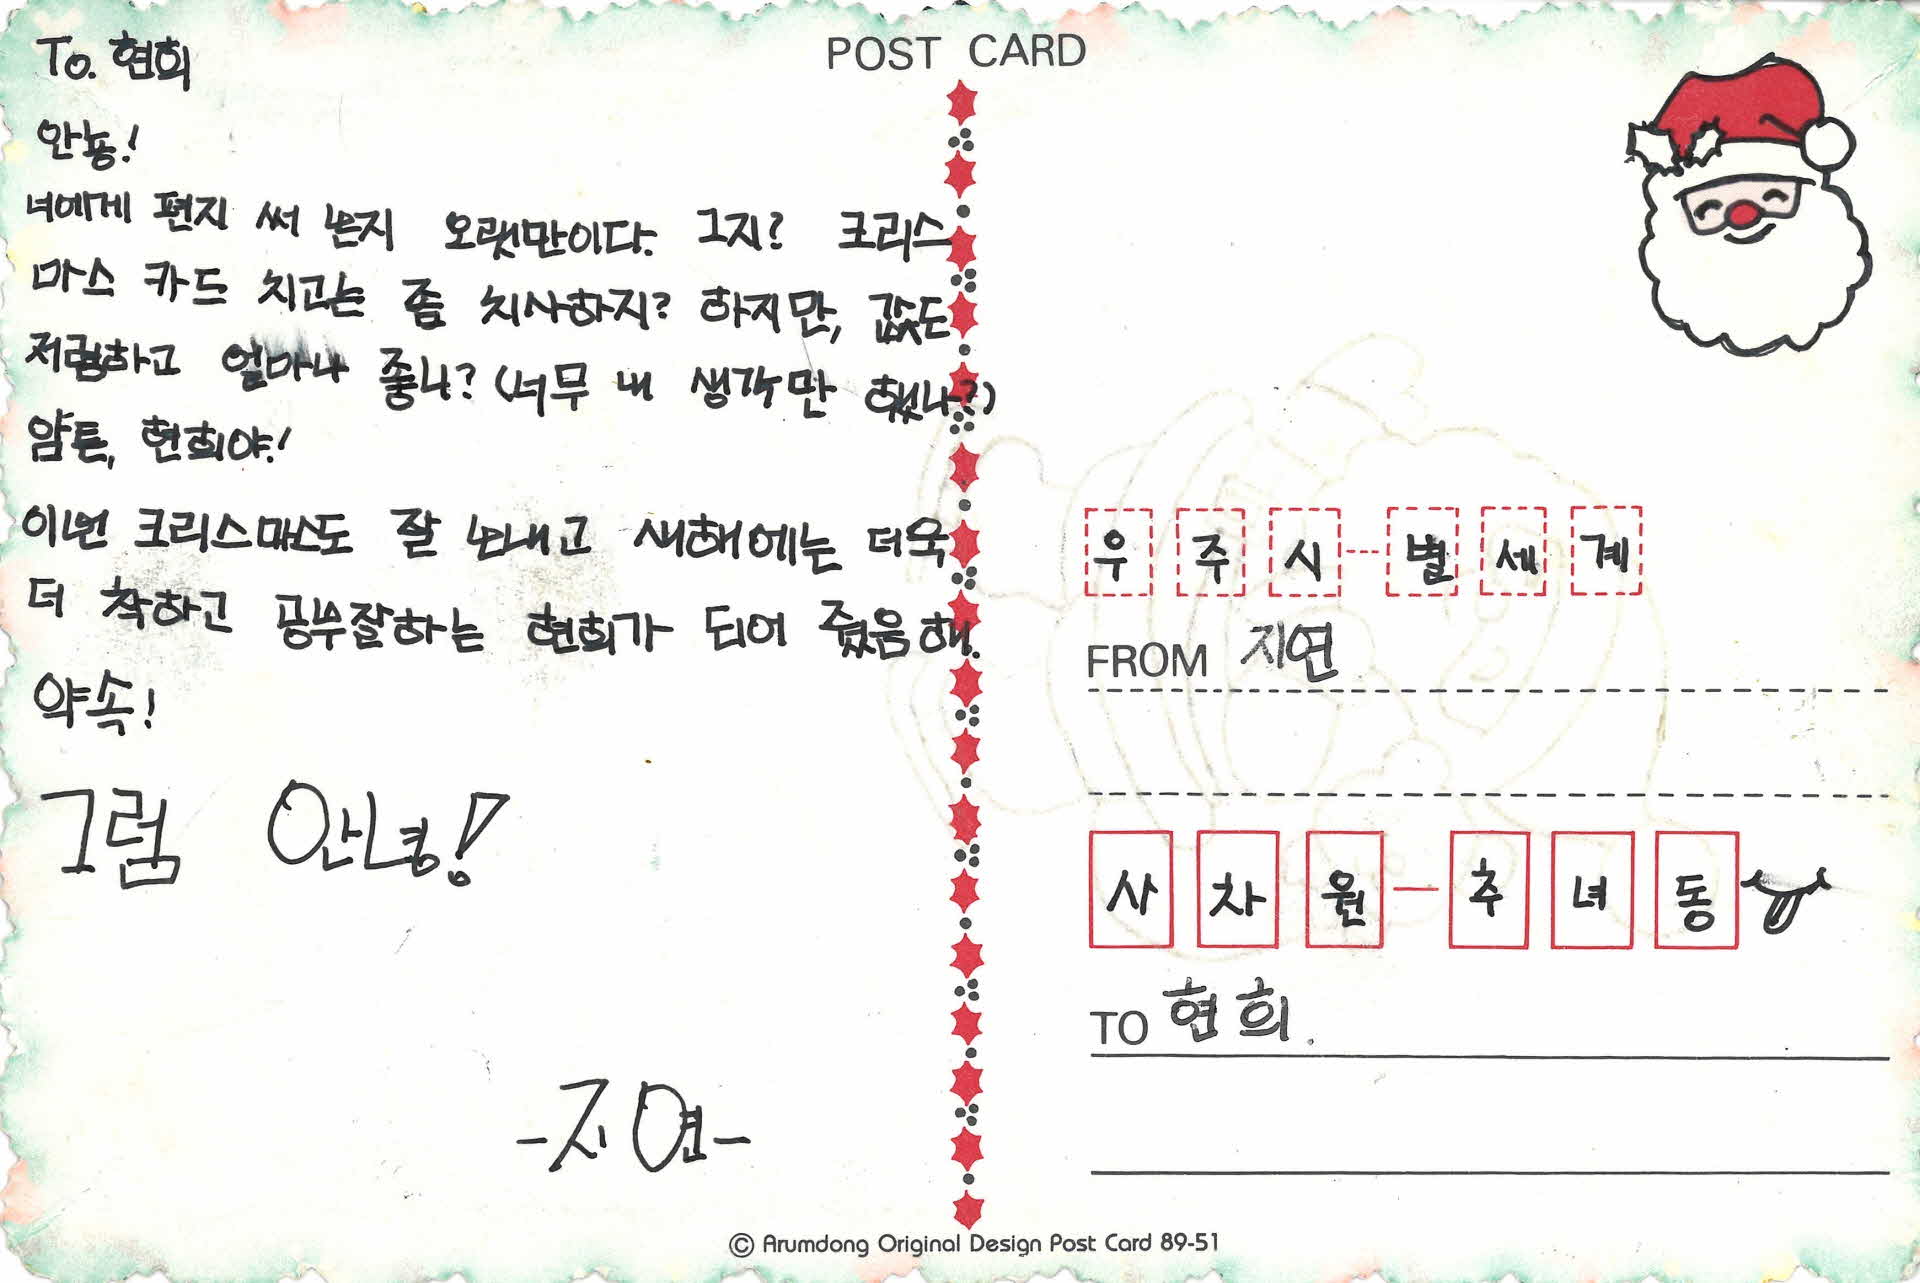 POST CARD
To. 현희
안뇽!
너에게 편지 써 본지 오랫만이다. 그지? 크리스
마스 카드 치고는 좀 치사하지? 하지만, 값도
저렴하고 얼마나 좋니? (너무 내 생각만 했나?)
암튼, 현희야!
이번 크리스마스도 잘 보내고 새해에는 더욱
더 착하고 공부잘하는 현희가 되어 줬음 해.
약속!
그럼 안녕!
-지연-
우주시---별세계
FROM 지연
사차원-추녀동
TO 현희.
© Arumdong Original Design Post Card 89-51